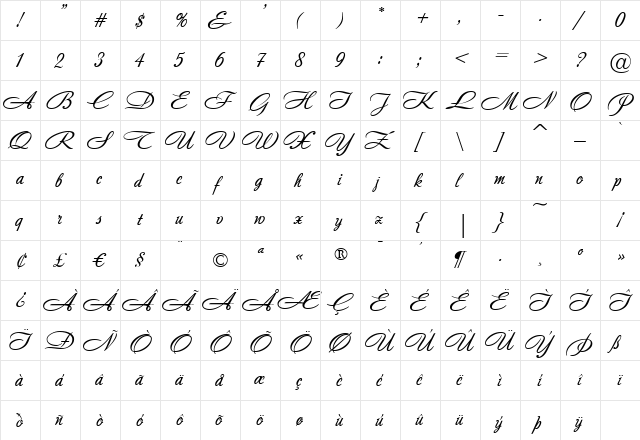 ! " # $ % & ' ( ) * + , - . / 0
1 2 3 4 5 6 7 8 9 : ; < = > ? @
A B C D E F G H I J K L M N O P
Q R S T U V W X Y Z [ \ ] ^ _ `
a b c d e f g h i j k l m n o p
q r s t u v w x y z { | } ~ ¡
¢ £ € § ¨ © ª « ® ¯ ´ ¶ · ¸ º »
¿ À Á Â Ã Ä Å Æ Ç È É Ê Ë Ì Í Î
Ï Ð Ñ Ò Ó Ô Õ Ö Ø Ù Ú Û Ü Ý Þ ß
à á â ã ä å æ ç è é ê ë ì í î ï
ð ñ ò ó ô õ ö ø ù ú û ü ý þ ÿ